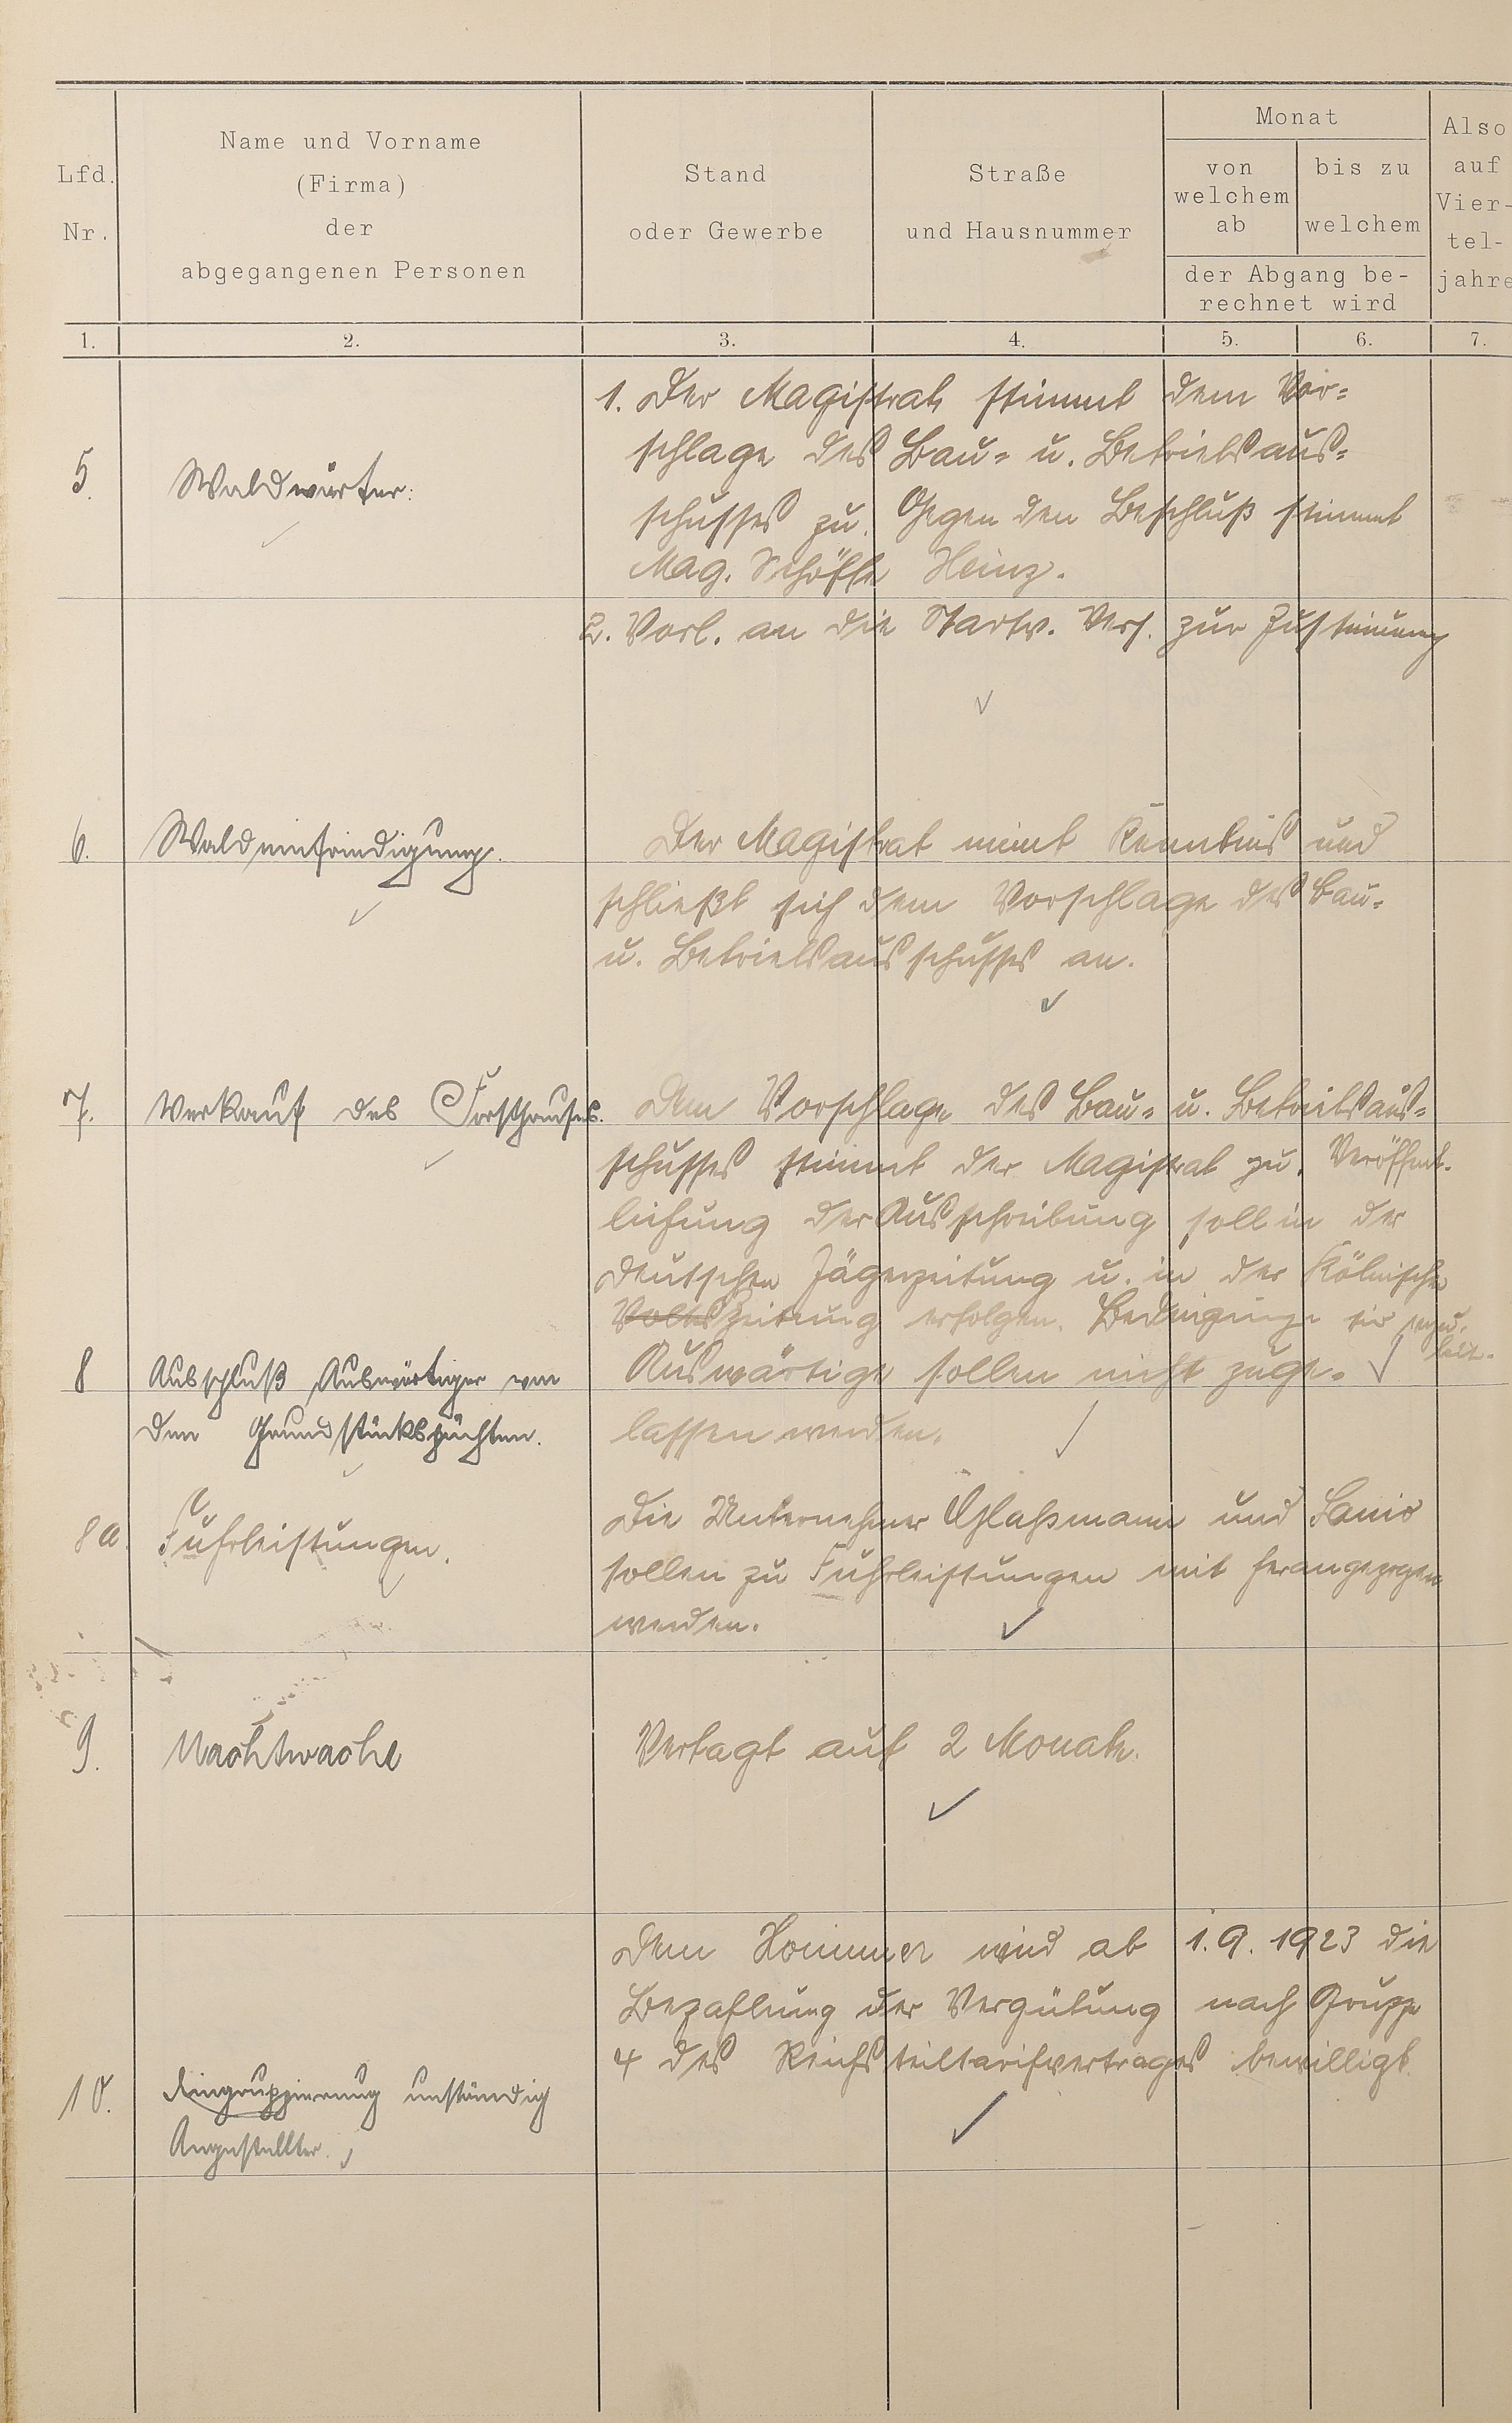 Lfd. Nr.
Name und Vorname
(Firma)
der
abgegangenen Personen
Stand
oder Gewerbe
Straße
und Hausnummer
Monat
von welchem ab
bis zu welchem
der Abgang be-
rechnet wird
Also
auf
Vier-
tel-
jahre
1. 2. 3. 4. 5. 6. 7.
5. Waldwärter.
1. Der Magistrat stimmt dem Vor-
schlage des Bau- u. Betriebsaus-
schusses zu. Gegen den Beschluß stimmt
Mag. Schöffe Heinz.
2. Vorl. an die Stadtv. Vers. zur Zustimmung
6. Waldeinfriedigung.
Der Magistrat nimt Kenntnis und
schließt sich dem Vorschlage des Bau-
u. Betriebsausschusses an.
7. Verkauf des Forsthauses.
Dem Vorschlage des Bau- u. Betriebsaus-
schusses stimmt der Magistrat zu. Veröffent-
lichung der Ausschreibung soll in der
Deutschen Jägerzeitung u. in der Kölnischen
Volkszeitung erfolgen.
8 Ausschluß Auswärtiger von
den Grundstückspachten.
Auswärtige sollen nicht zuge-
lassen werden.
8a. Fuhrleistungen.
Die Unternehmer Glaßmann und Sanio
sollen zu Fuhrleistungen mit herangezogen
werden.
9. Nachtwache
Vertagt auf 2 Monate.
Dem Hommer wird ab 1.9.1923 die
Bezahlung der Vergütung nach Gruppe
4 des Reichsteiltarifvertrages bewilligt.
10. Eingruppierung unständig
Angestellter.